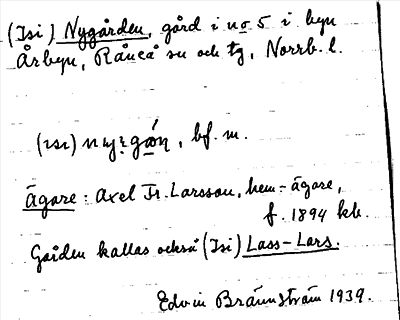 (Isi) Nygården, gård i no 5 i byn
Årbyn, Råneå sn och tg, Norrb. l.
bf. m.
Ägare: Axel Fr. Larsson, hem.-ägare,
f. 1894 kb.
Gården kallas också (Isi) Lass-Lars.
Edvin Brännström 1939.